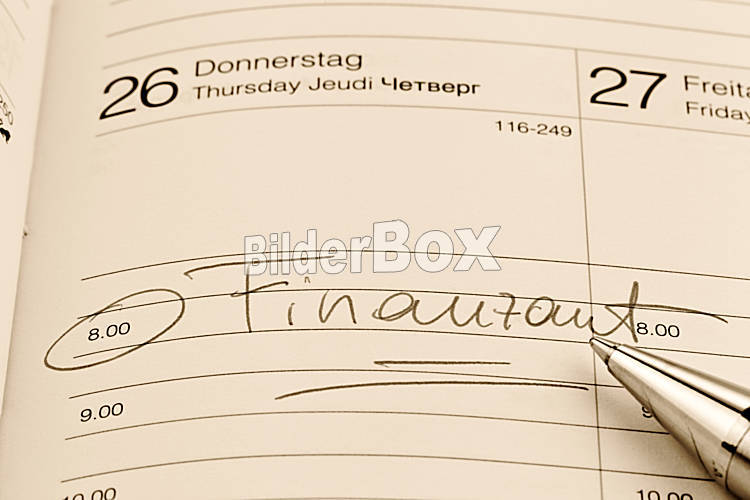 26 Donnerstag
Thursday Jeudi Четверг
116-249
27
Friday
BilderBox
Finanzamt
8.00
8.00
9.00
10.00
10.00